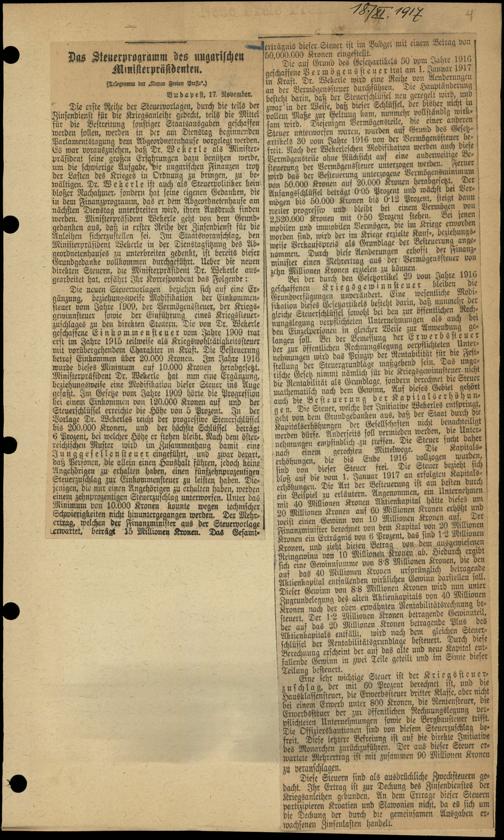 18./XI. 1917
4
Das Steuerprogramm des ungarischen
Ministerpräsidenten.
(Telegramm der „Neuen Freien Presse“.)
Budapest, 17. November.
Die erste Reihe der Steuervorlagen, durch die teils der
Zinsendienst für die Kriegsanleihe gedeckt, teils die Mittel
für die Bestreitung sonstiger Staatsausgaben geschaffen
werden sollen, werden in der am Dienstag beginnenden
Parlamentstagung dem Abgeordnetenhause vorgelegt werden.
Es war vorauszusehen, daß Dr. Wekerle als Minister-
präsident seine großen Erfahrungen dazu benützen werde,
um die schwierige Aufgabe, die ungarischen Finanzen trotz
der Lasten des Krieges in Ordnung zu bringen, zu be-
wältigen. Dr. Wekerle ist auch als Steuerpolitiker kein
bloßer Nachahmer, sondern hat seine eigenen Gedanken, die
in dem Finanzprogramm, das er dem Abgeordnetenhause am
nächsten Dienstag unterbreiten wird, ihren Ausdruck finden
werden. Ministerpräsident Wekerle geht von dem Grund-
gedanken aus, daß in erster Reihe der Zinsendienst für die
Anleihen sicherzustellen sei. Im Staatsvoranschlag, den
Ministerpräsident Wekerle in der Dienstagsitzung des Ab-
geordnetenhauses zu unterbreiten gedenkt, ist bereits dieser
Grundgedanke vollkommen durchgeführt. Ueber die neuen
direkten Steuern, die Ministerpräsident Dr. Wekerle aus-
gearbeitet hat, erfährt Ihr Korrespondent das Folgende:
Die neuen Steuervorlagen beziehen sich auf eine Er-
gänzung, beziehungsweise Modifikation der Einkommen-
steuer vom Jahre 1909, der Vermögensteuer, der Kriegs-
gewinnsteuer sowie der Einführung eines Kriegssteuer-
zuschlages zu den direkten Steuern. Die von Dr. Wekerle
geschaffene Einkommensteuer vom Jahre 1909 trat
erst im Jahre 1915 teilweise als Kriegswohltätigkeitssteuer
mit vorübergehendem Charakter in Kraft. Die Besteuerung
betraf Einkommen über 20.000 Kronen. Im Jahre 1916
wurde dieses Minimum auf 10.000 Kronen herabgesetzt.
Ministerpräsident Dr. Wekerle hat nun eine Ergänzung,
beziehungsweise eine Modifikation dieser Steuer ins Auge
gefaßt. Im Gesetze vom Jahre 1909 hörte die Progression
bei einem Einkommen von 120.000 Kronen auf und der
Steuerschlüssel erreichte die Höhe von 5 Prozent. In der
Vorlage Dr. Wekerles steigt der progressive Steuerschlüssel
bis 200.000 Kronen, und der höchste Schlüssel beträgt
6 Prozent, bei welcher Höhe er stehen bleibt. Nach dem öster-
reichischen Muster wird im Zusammenhang damit eine
Junggesellensteuer eingeführt, und zwar derart,
daß Personen, die allein einen Haushalt führen, doch keine
Angehörigen zu erhalten haben, einen fünfzehnprozentigen
Steuerzuschlag zur Einkommensteuer zu leisten haben. Die-
jenigen, die nur einen Angehörigen zu erhalten haben, werden
einem zehnprozentigen Steuerzuschlag unterworfen. Unter das
Minimum von 10.000 Kronen konnte wegen technischer
Schwierigkeiten nicht hinuntergegangen werden. Der Mehr-
ertrag, welchen der Finanzminister aus der Steuervorlage
erwartet, beträgt 15 Millionen Kronen. Das Gesamt-
erträgnis dieser Steuer ist im Budget mit einem Betrag von
50,000.000 Kronen eingestellt.
Die auf Grund des Gesetzartikels 50 vom Jahre 1916
geschaffene Vermögenssteuer trat am 1. Januar 1917
in Kraft. Dr. Wekerle wird eine Reihe von Aenderungen
an der Vermögensteuer durchführen. Die Hauptänderung
besteht darin, daß der Steuerschlüssel neu geregelt wird, und
zwar in der Weise, daß dieser Schlüssel, der bisher nicht in
vollem Maße zur Geltung kam, nunmehr vollständig wirk-
sam wird. Diejenigen Vermögensteile, die einer anderen
Steuer unterworfen waren, wurden auf Grund des Gesetz-
artikels 30 vom Jahre 1916 von der Vermögensteuer be-
freit. Nach der Wekerleschen Modifikation werden auch diese
Vermögensteile ohne Rücksicht auf eine anderweitige Be-
steuerung der Vermögensteuer unterzogen werden. Ferner
wird das der Besteuerung unterzogene Vermögensminimum
von 50.000 Kronen auf 20.000 Kronen herabgesetzt. Der
Anfangsschlüssel beträgt 0·05 Prozent und wächst bei Ver-
mögen bis 50.000 Kronen bis 0·12 Prozent, steigt dann
weiter progressiv und bleibt bei einem Vermögen von
2,820.000 Kronen mit 0·50 Prozent stehen. Bei jenen
mobilen und immobilen Vermögen, die im Krieg erworben
worden sind, wird der im Krieg erzielte Kauf-, beziehungs-
weise Verkaufspreis als Grundlage der Besteuerung ange-
nommen. Durch diese Aenderungen erhofft der Finanz-
minister einen Mehrertrag aus der Vermögensteuer von
zehn Millionen Kronen erzielen zu können.
Bei der durch den Gesetzartikel 29 vom Jahre 1916
geschaffenen Kriegsgewinnsteuer bleiben die
Grundverfügungen unverändert. Eine wesentliche Modi-
fikation dieses Gesetzartikels besteht darin, daß nunmehr der
gleiche Steuerschlüssel sowohl bei den zur öffentlichen Rech-
nungslegung verpflichteten Unternehmungen als auch bei
den Einzelpersonen in gleicher Weise zur Anwendung ge-
langen soll. Bei der Bemessung der Erwerbsteuer
der zur öffentlichen Rechnungslegung verpflichteten Unter-
nehmungen wird das Prinzip der Rentabilität für die Fest-
stellung der Steuergrundlage maßgebend sein. Das unga-
rische Gesetz nimmt nämlich für die Kriegsgewinnsteuer nicht
die Rentabilität als Grundlage, sondern berechnet die Steuer
mathematisch nach dem Gewinn. Auf dieses Gebiet gehört
auch die Besteuerung der Kapitalserhöhun-
gen. Die Steuer, welche der Initiative Wekerles entspringt,
geht von dem Grundgedanken aus, daß der Staat durch die
Kapitalserhöhungen der Gesellschaften nicht benachteiligt
werden dürfe. Anderseits soll vermieden werden, die Unter-
nehmungen empfindlich zu treffen. Die Steuer sucht daher
nach einem gerechten Mittelwege. Die Kapitals-
erhöhungen, die bis Ende 1916 vollzogen wurden,
sind von dieser Steuer frei. Die Steuer bezieht sich
bloß auf die vom 1. Januar 1917 an erfolgten Kapitals-
erhöhungen. Die Art der Besteuerung ist am besten durch
ein Beispiel zu erläutern. Angenommen, ein Unternehmen
mit 40 Millionen Kronen Aktienkapital erhöht dieses um
20 Millionen Kronen auf 60 Millionen Kronen und
weist einen Gewinn von 10 Millionen Kronen auf. Der
Finanzminister berechnet von dem Kapital von 20 Millionen
Kronen ein Erträgnis von 6 Prozent, das sind 1·2 Millionen
Kronen, und zieht diesen Betrag von dem ausgewiesenen
Reingewinn von 10 Millionen Kronen ab. Hiedurch ergibt
sich eine Gewinnsumme von 8·8 Millionen Kronen, die den
auf das 40 Millionen Kronen ursprünglich betragende
Aktienkapital entfallenden wirklichen Gewinn darstellen soll.
Dieser Gewinn von 8·8 Millionen Kronen wird nun unter
Zugrundelegung des alten Aktienkapitals von 40 Millionen
Kronen nach der oben erwähnten Rentabilitätsrechnung be-
steuert. Der 1·2 Millionen Kronen betragende Gewinnteil,
der auf das 20 Millionen Kronen betragende Plus des
Aktienkapitals entfällt, wird nach dem gleichen Steuer-
schlüssel der Rentabilitätsgrundlage besteuert. Durch diese
Berechnung erscheint der auf das alte und neue Kapital ent-
fallende Gewinn in zwei Teile geteilt und im Sinne dieser
Teilung besteuert.
Eine sehr wichtige Steuer ist der Kriegssteuer-
zuschlag, der mit 60 Prozent berechnet ist, und die
Hausklassensteuer, die Erwerbsteuer dritter Klasse, aber nicht
bei einem Erwerb unter 800 Kronen, die Rentensteuer, die
Erwerbsteuer der zur öffentlichen Rechnungslegung ver-
pflichteten Unternehmungen sowie die Bergbausteuer trifft.
Die Offizierskautionen sind von diesem Steuerzuschlag be-
freit. Diese letztere Befreiung ist auf die direkte Initiative
des Monarchen zurückzuführen. Der aus dieser Steuer er-
wartete Mehrertrag ist mit zusammen 90 Millionen Kronen
zu veranschlagen.
Diese Steuern sind als ausdrückliche Zwecksteuern ge-
dacht. Ihr Ertrag ist zur Deckung des Zinsendienstes der
Kriegsanleihen gebunden. An dem Ertrage dieser Steuern
partizipieren Kroatien und Slawonien nicht, da es sich um
die Deckung der durch die gemeinsamen Ausgaben er-
wachsenen Zinsenlasten handelt.